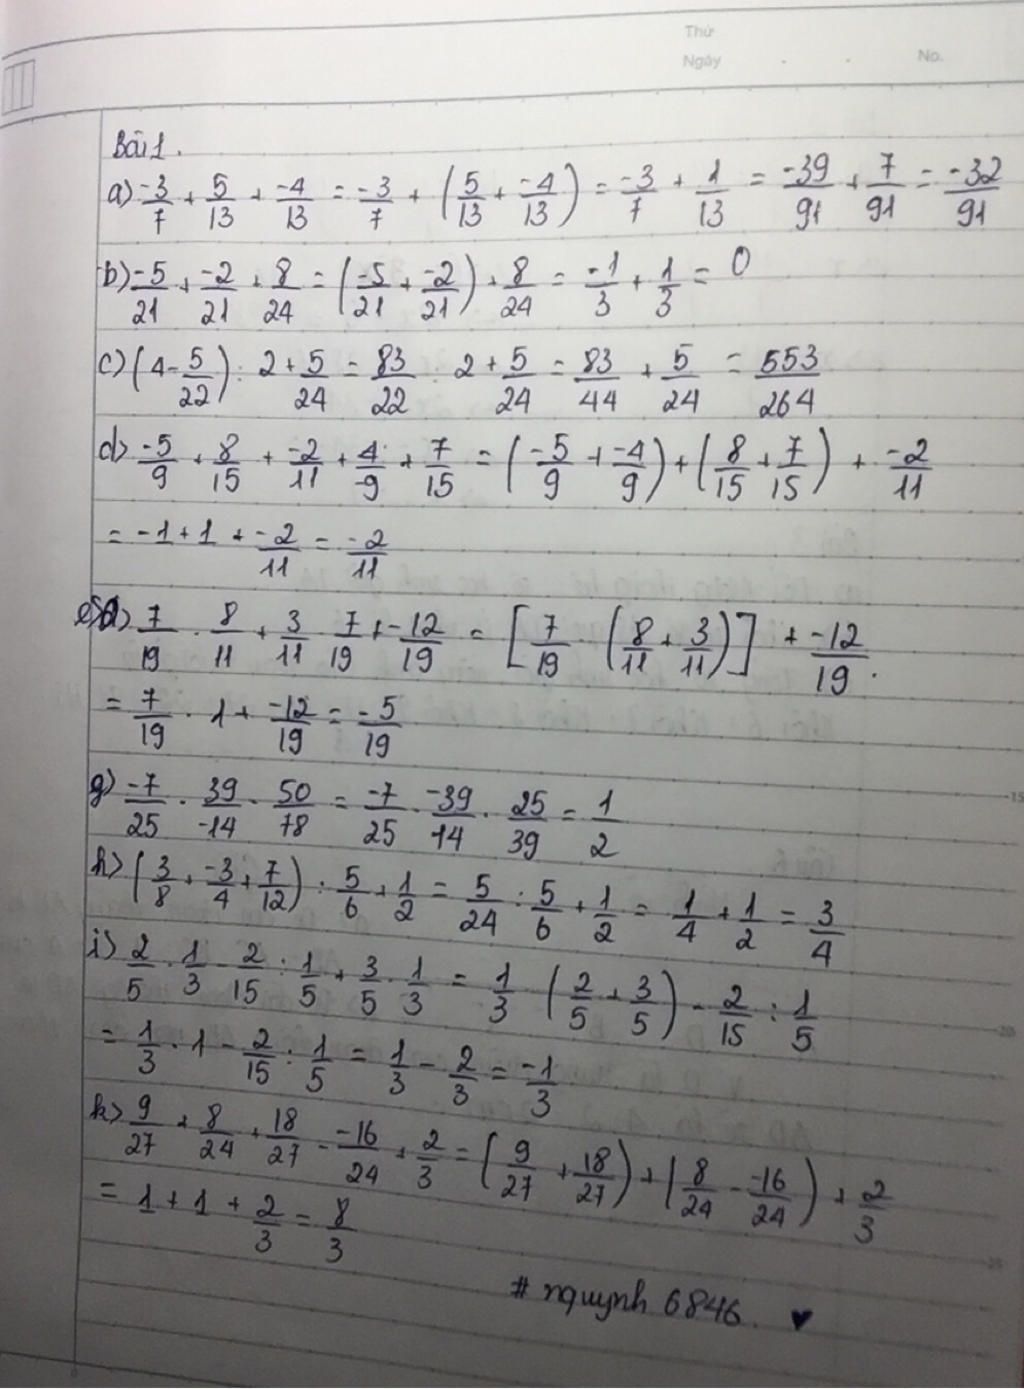 Thứ
Ngày . . No.
Bài 1.
a) -3/7 + 5/13 + -4/13 = -3/7 + (5/13 + -4/13) = -3/7 + 1/13 = -39/91 + 7/91 = -32/91
b) -5/21 + -2/21 + 8/24 = (-5/21 + -2/21) + 8/24 = -1/3 + 1/3 = 0
c) (4 - 5/22) : 2 + 5/24 = 83/22 : 2 + 5/24 = 83/44 + 5/24 = 553/264
d) -5/9 + 8/15 + -2/11 + 4/-9 + 7/15 = (-5/9 + -4/9) + (8/15 + 7/15) + -2/11
= -1 + 1 + -2/11 = -2/11
e) 7/19 . 8/11 + 3/11 . 7/19 + -12/19 = [7/19 . (8/11 + 3/11)] + -12/19.
= 7/19 . 1 + -12/19 = -5/19
g) -7/25 . 39/-14 . 50/78 = -7/25 . -39/14 . 25/39 = 1/2
h) (3/8 + -3/4 + 7/12) : 5/6 + 1/2 = 5/24 : 5/6 + 1/2 = 1/4 + 1/2 = 3/4
i) 2/5 . 1/3 - 2/15 : 1/5 + 3/5 . 1/3 = 1/3 . (2/5 + 3/5) - 2/15 : 1/5
= 1/3 . 1 - 2/15 : 1/5 = 1/3 - 2/3 = -1/3
k) 9/27 + 8/24 + 18/27 - -16/24 + 2/3 = (9/27 + 18/27) + (8/24 - -16/24) + 2/3
= 1 + 1 + 2/3 = 8/3
# nquynh 6846. ♥